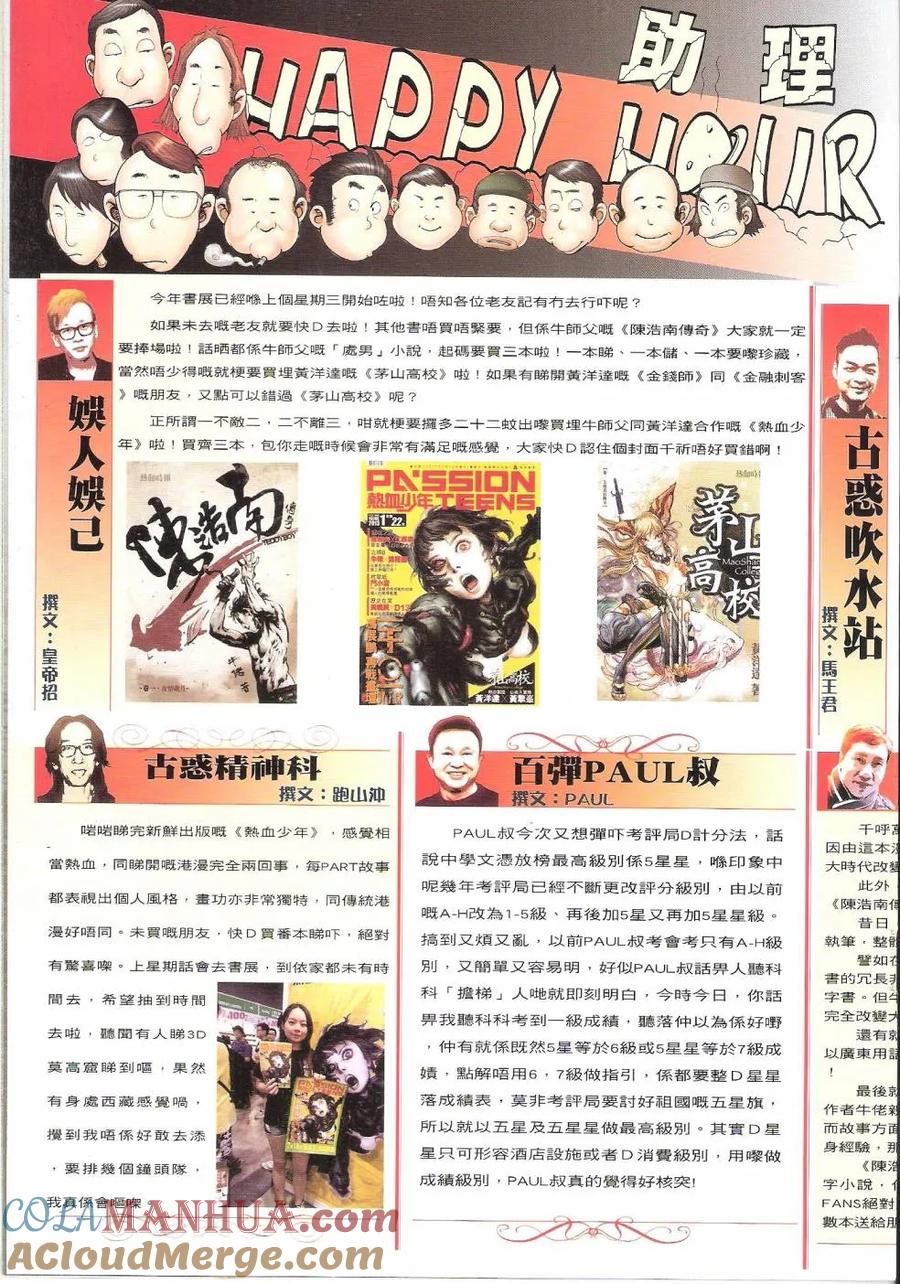 助理
HAPPY HOUR
娛人娛己
撰文：皇帝招
今年書展已經喺上個星期三開始咗啦！唔知各位老友記有冇去行吓呢？
如果未去嘅老友就要快D去啦！其他書唔買唔緊要，但係牛師父嘅《陳浩南傳奇》大家就一定
要捧場啦！話晒都係牛師父嘅「處男」小說，起碼要買三本啦！一本睇、一本儲、一本要嚟珍藏，
當然唔少得嘅就梗要買埋黃洋達嘅《茅山高校》啦！如果有睇開黃洋達嘅《金錢師》同《金融刺客
》嘅朋友，又點可以錯過《茅山高校》呢？
正所謂一不敵二，二不離三，咁就梗要攞多二十二蚊出嚟買埋牛師父同黃洋達合作嘅《熱血少
年》啦！買齊三本，包你走嘅時候會非常有滿足嘅感覺，大家快D認住個封面千祈唔好買錯啊！
熱血時報
陳浩南
傳奇
TEDDYBOY
牛佬 著
PASSION
熱血少年TEENS
茅山高校
黃洋達 X 黃擎峯
熱血時報
茅山高校
MaoShan
College
黃洋達 著
古惑吹水站
撰文：馬王君
古惑精神科
撰文：跑山沖
啱啱睇完新鮮出版嘅《熱血少年》，感覺相
當熱血，同睇開嘅港漫完全兩回事，每PART故事
都表視出個人風格，畫功亦非常獨特，同傳統港
漫好唔同。未買嘅朋友，快D買番本睇吓，絕對
有驚喜㗎。上星期話會去書展，到依家都未有時
間去，希望抽到時間
去啦，聽聞有人睇3D
莫高窟睇到嘔，果然
有身處西藏感覺喎，
攪到我唔係好敢去添
，要排幾個鐘頭隊，
我真係會嘔㗎
百彈PAUL叔
撰文：PAUL
PAUL叔今次又想彈吓考評局D計分法，話
說中學文憑放榜最高級別係5星星，喺印象中
呢幾年考評局已經不斷更改評分級別，由以前
嘅A-H改為1-5級、再後加5星又再加5星星級。
搞到又煩又亂，以前PAUL叔考會考只有A-H級
別，又簡單又容易明，好似PAUL叔話畀人聽科
科「擔梯」人哋就即刻明白，今時今日，你話
畀我聽科科考到一級成績，聽落仲以為係好嘢
，仲有就係既然5星等於6級或5星星等於7級成
績，點解唔用6，7級做指引，係都要整D星星
落成績表，莫非考評局要討好祖國嘅五星旗，
所以就以五星及五星星做最高級別。其實D星
星只可形容酒店設施或者D消費級別，用嚟做
成績級別，PAUL叔真的覺得好核突!
千呼萬
因由這本漫
大時代改變
此外，
《陳浩南傳
昔日，
執筆，整體
譬如在
書的冗長非
字書。但牛
完全改變大
還有就
以廣東用語
！
最後就
作者牛佬親
而故事方面
身經驗，那
《陳浩
字小說，
FANS絕對
數本送給朋
COLAMANHUA.com
ACloudMerge.com